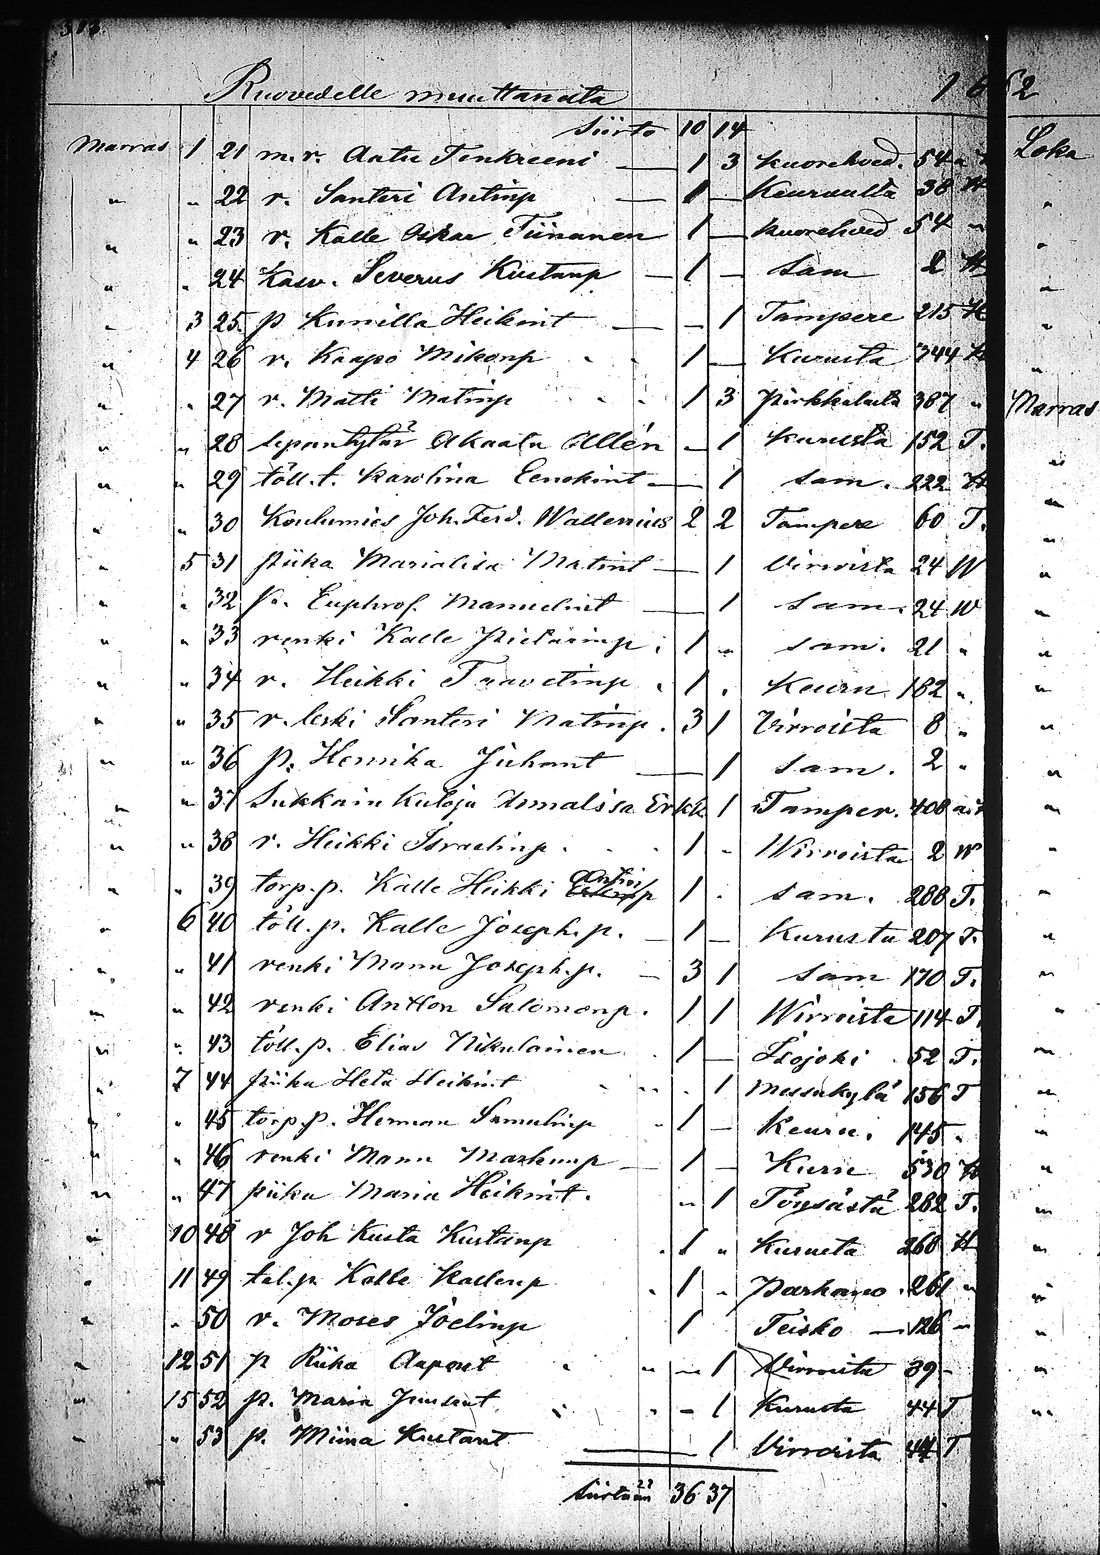 Ruovedelle muuttaneita 1 6 62
Siirto 10 14
Marras 1 21 m.r. Aatu Tenkreeni — 1 3 Kuorehved. 54 Loka
" " 22 r. Santeri Antinp — 1 — Keuruulta 38 W
" " 23 r. Kalle Oskar Tiinanen 1 — Kuorehved 54 "
" " 24 Kasv. Severus Kustanp — 1 — Sam 2 W
" 3 25 p Kunilla Heikint — — 1 Tampere 215 W
" 4 26 r. Kaapo Mikonp " " 1 — Kurusta 344 W
" " 27 r. Matti Matinp " " 1 3 Pirkkalasta 387 " Marras
" " 28 sepäntytär Akaata Allén — 1 Kurusta 152 T.
" " 29 töll.t. Karolina Eenokint — 1 sam. 222 W
" " 30 Koulumies Joh. Ferd. Wallenius 2 2 Tampere 60 T.
" 5 31 piika Marialisa Matint — 1 Virroista 24 W
" " 32 p. Euphros. Manuelint — 1 sam. 24 W
" " 33 renki Kalle Pietarinp. 1 " sam. 21 "
" " 34 r. Heikki Taavetinp " 1 " Keuru 182 "
" " 35 r. leski Santeri Matinp. 3 1 Virroista 8 "
" " 36 p. Henrika Juhont — 1 sam. 2 "
" " 37 Sukkain Kutoja Annalisa Erkk. 1 Tamper. 408
" " 38 r. Heikki Israelinp. " 1 " Wirroista 2 W
" " 39 torp.p. Kalle Heikki Antinp 1 " sam. 288 T.
" 6 40 töll.p. Kalle Joseph.p. — 1 — Kurusta 207 T.
" " 41 renki Mannu Joseph.p. — 3 1 sam 170 T.
" " 42 renki Antton Salomonp. 1 1 Wirroista 114 T.
" " 43 töll.p. Elias Nikulainen " 1 — Isojoki 52 T.
" 7 44 piika Heta Heikint " " 1 Messukylä 156 T
" " 45 torp.p. Herman Samulinp " 1 — Keuru. 145 "
" " 46 renki Mannu Markunp — 1 — Kuru 530 W
" " 47 piika Maria Heikint. " 1 Töysästä 282 T.
" 10 48 r Joh Kusta Kustanp " 1 " Kurusta 268 W
" 11 49 tal.p. Kalle Kallenp " 1 " Parkano. 261 "
" " 50 r. Moses Joelinp 1 Teisko — 126 "
" 12 51 p Riika Aapont " " — 1 Virroista 39 -
" 15 52 p. Maria Jussint. " " — 1 Kurusta 44 T
" " 53 p. Miina Kustant — 1 Virroista 44 T
Siirtään 36 37